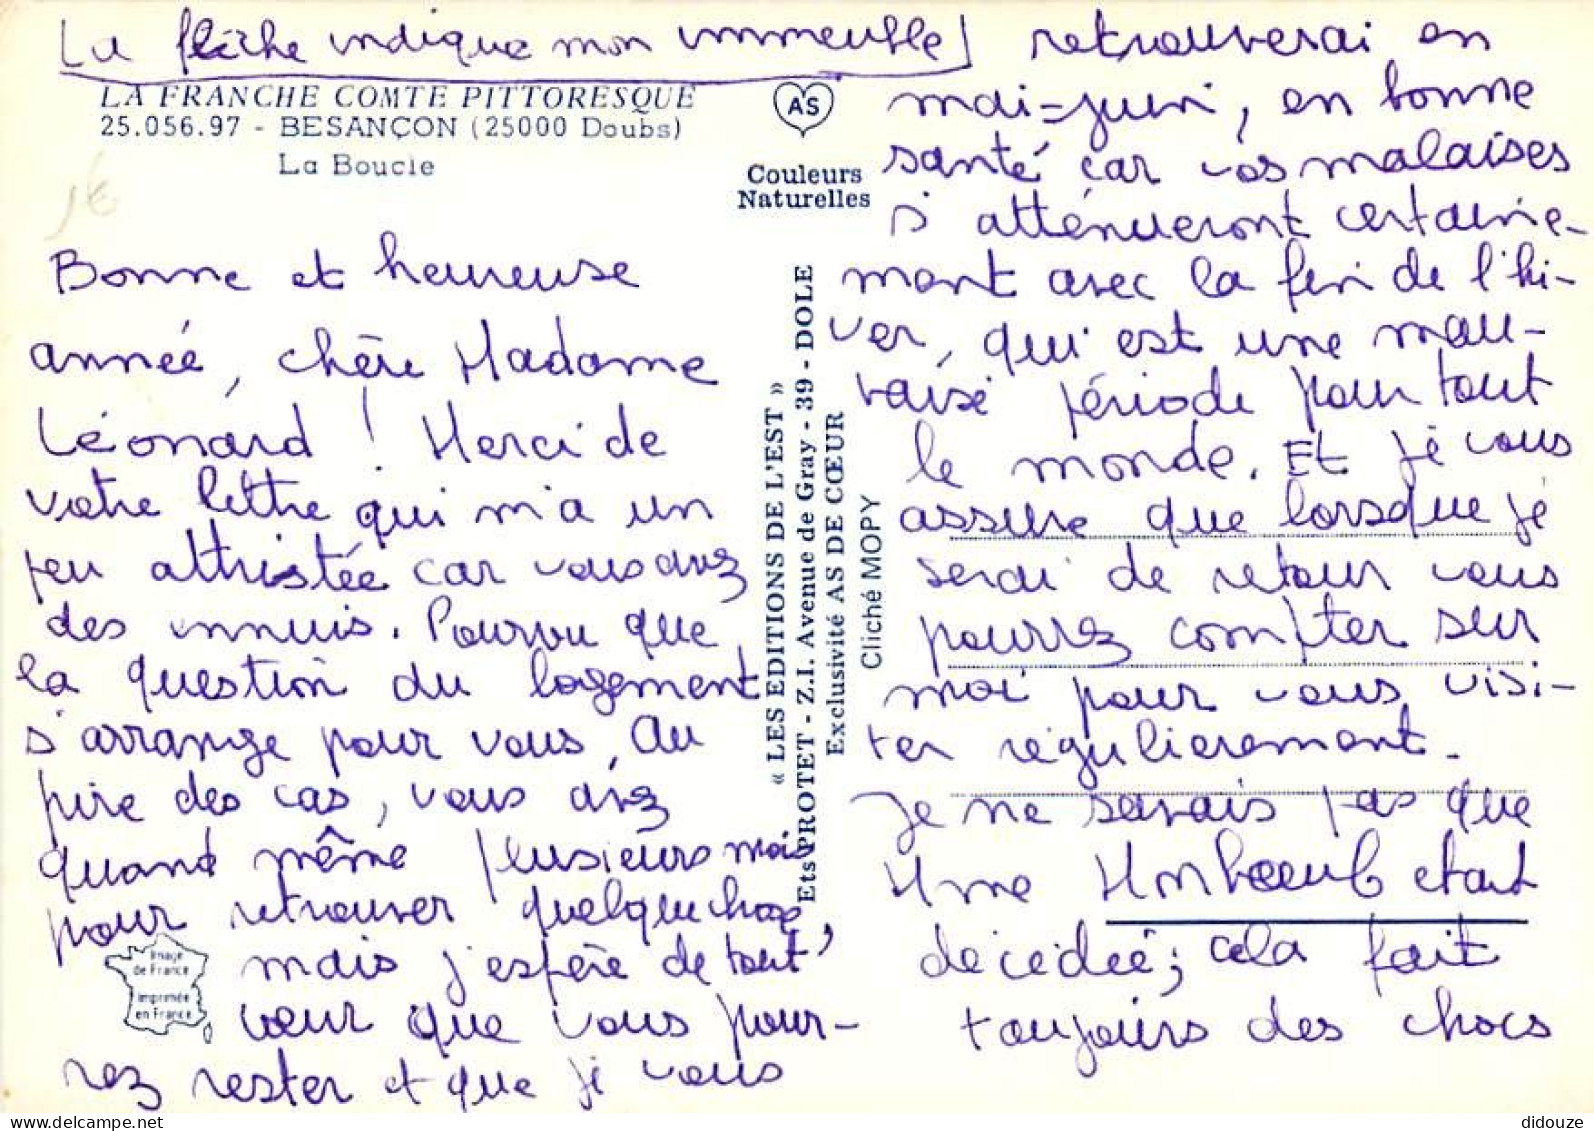 La flèche indique mon immeuble
LA FRANCHE COMTE PITTORESQUE
25.056.97 - BESANÇON (25000 Doubs)
La Boucle
1€
Bonne et heureuse
année, chère Madame
Léonard ! Merci de
votre lettre qui m'a un
peu attristée car vous avez
des ennuis. Pourvu que
la question du logement
s'arrange pour vous. Au
pire des cas, vous avez
quand même plusieurs mois
pour retrouver quelque chose,
mais j'espère de tout
cœur que vous pour-
rez rester et que je vous
Image
de France
Imprimée
en France
AS
Couleurs
Naturelles
« LES EDITIONS DE L'EST »
Ets PROTET - Z.I. Avenue de Gray - 39 - DOLE
Exclusivité AS DE CŒUR
Cliché MOPY
retrouverai en
mai-juin, en bonne
santé car vos malaises
s'atténueront certaine-
ment avec la fin de l'hi-
ver, qui est une mau-
vaise période pour tout
le monde. Et je vous
assure que lorsque je
serai de retour vous
pourrez compter sur
moi pour vous visi-
ter régulierement.
Je ne savais pas que
Mme était
décédée ; cela fait
toujours des chocs
delcampe.net
didouze